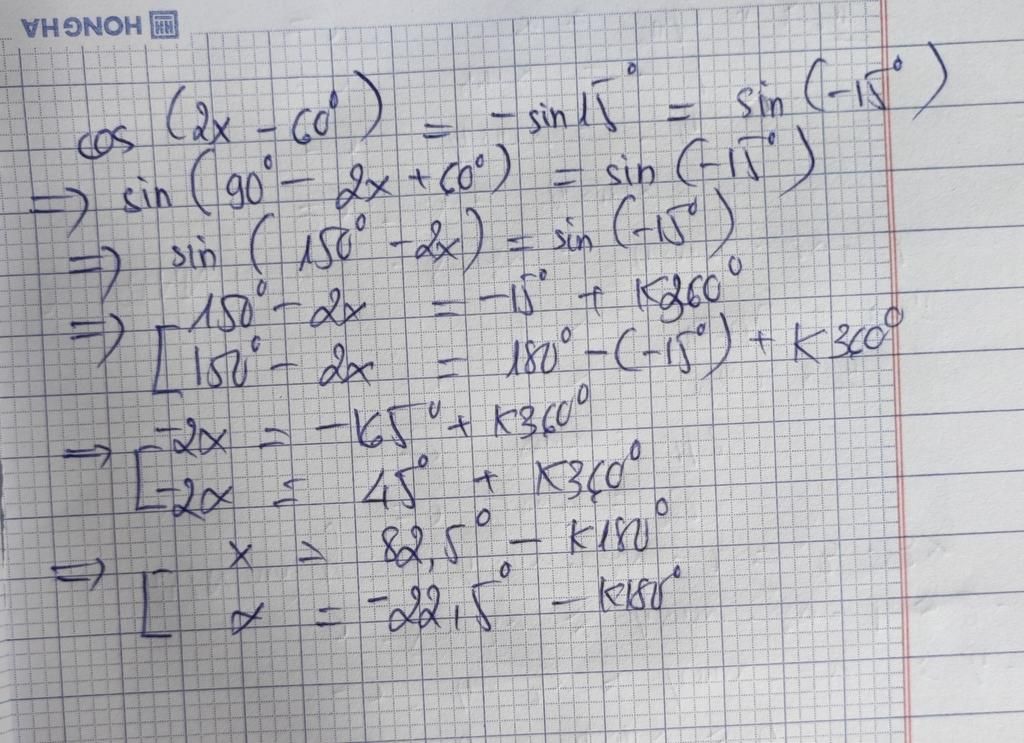 HONG HA
cos (2x - 60°) = - sin 15° = sin (-15°)
=> sin (90° - 2x + 60°) = sin (-15°)
=> sin (150° - 2x) = sin (-15°)
=> [ 150° - 2x = -15° + K360°
150° - 2x = 180° - (-15°) + K360°
=> [ -2x = -165° + K360°
-2x = 45° + K360°
=> [ x = 82,5° - K180°
x = -22,5° - K180°